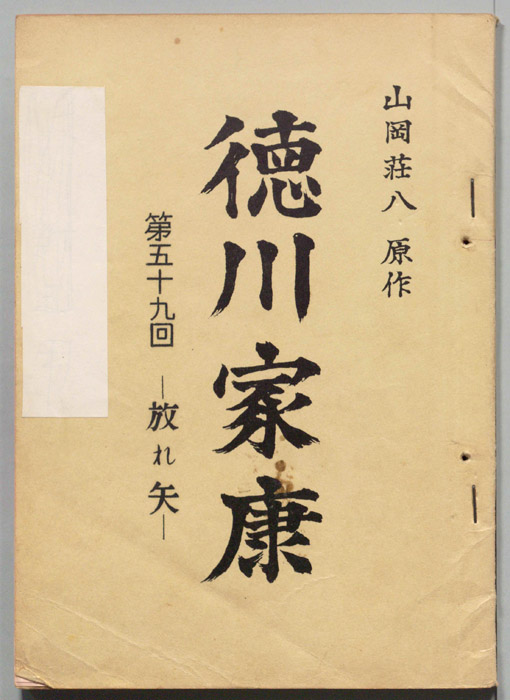 山岡荘八 原作
徳川家康
第五十九回 ―放れ矢―